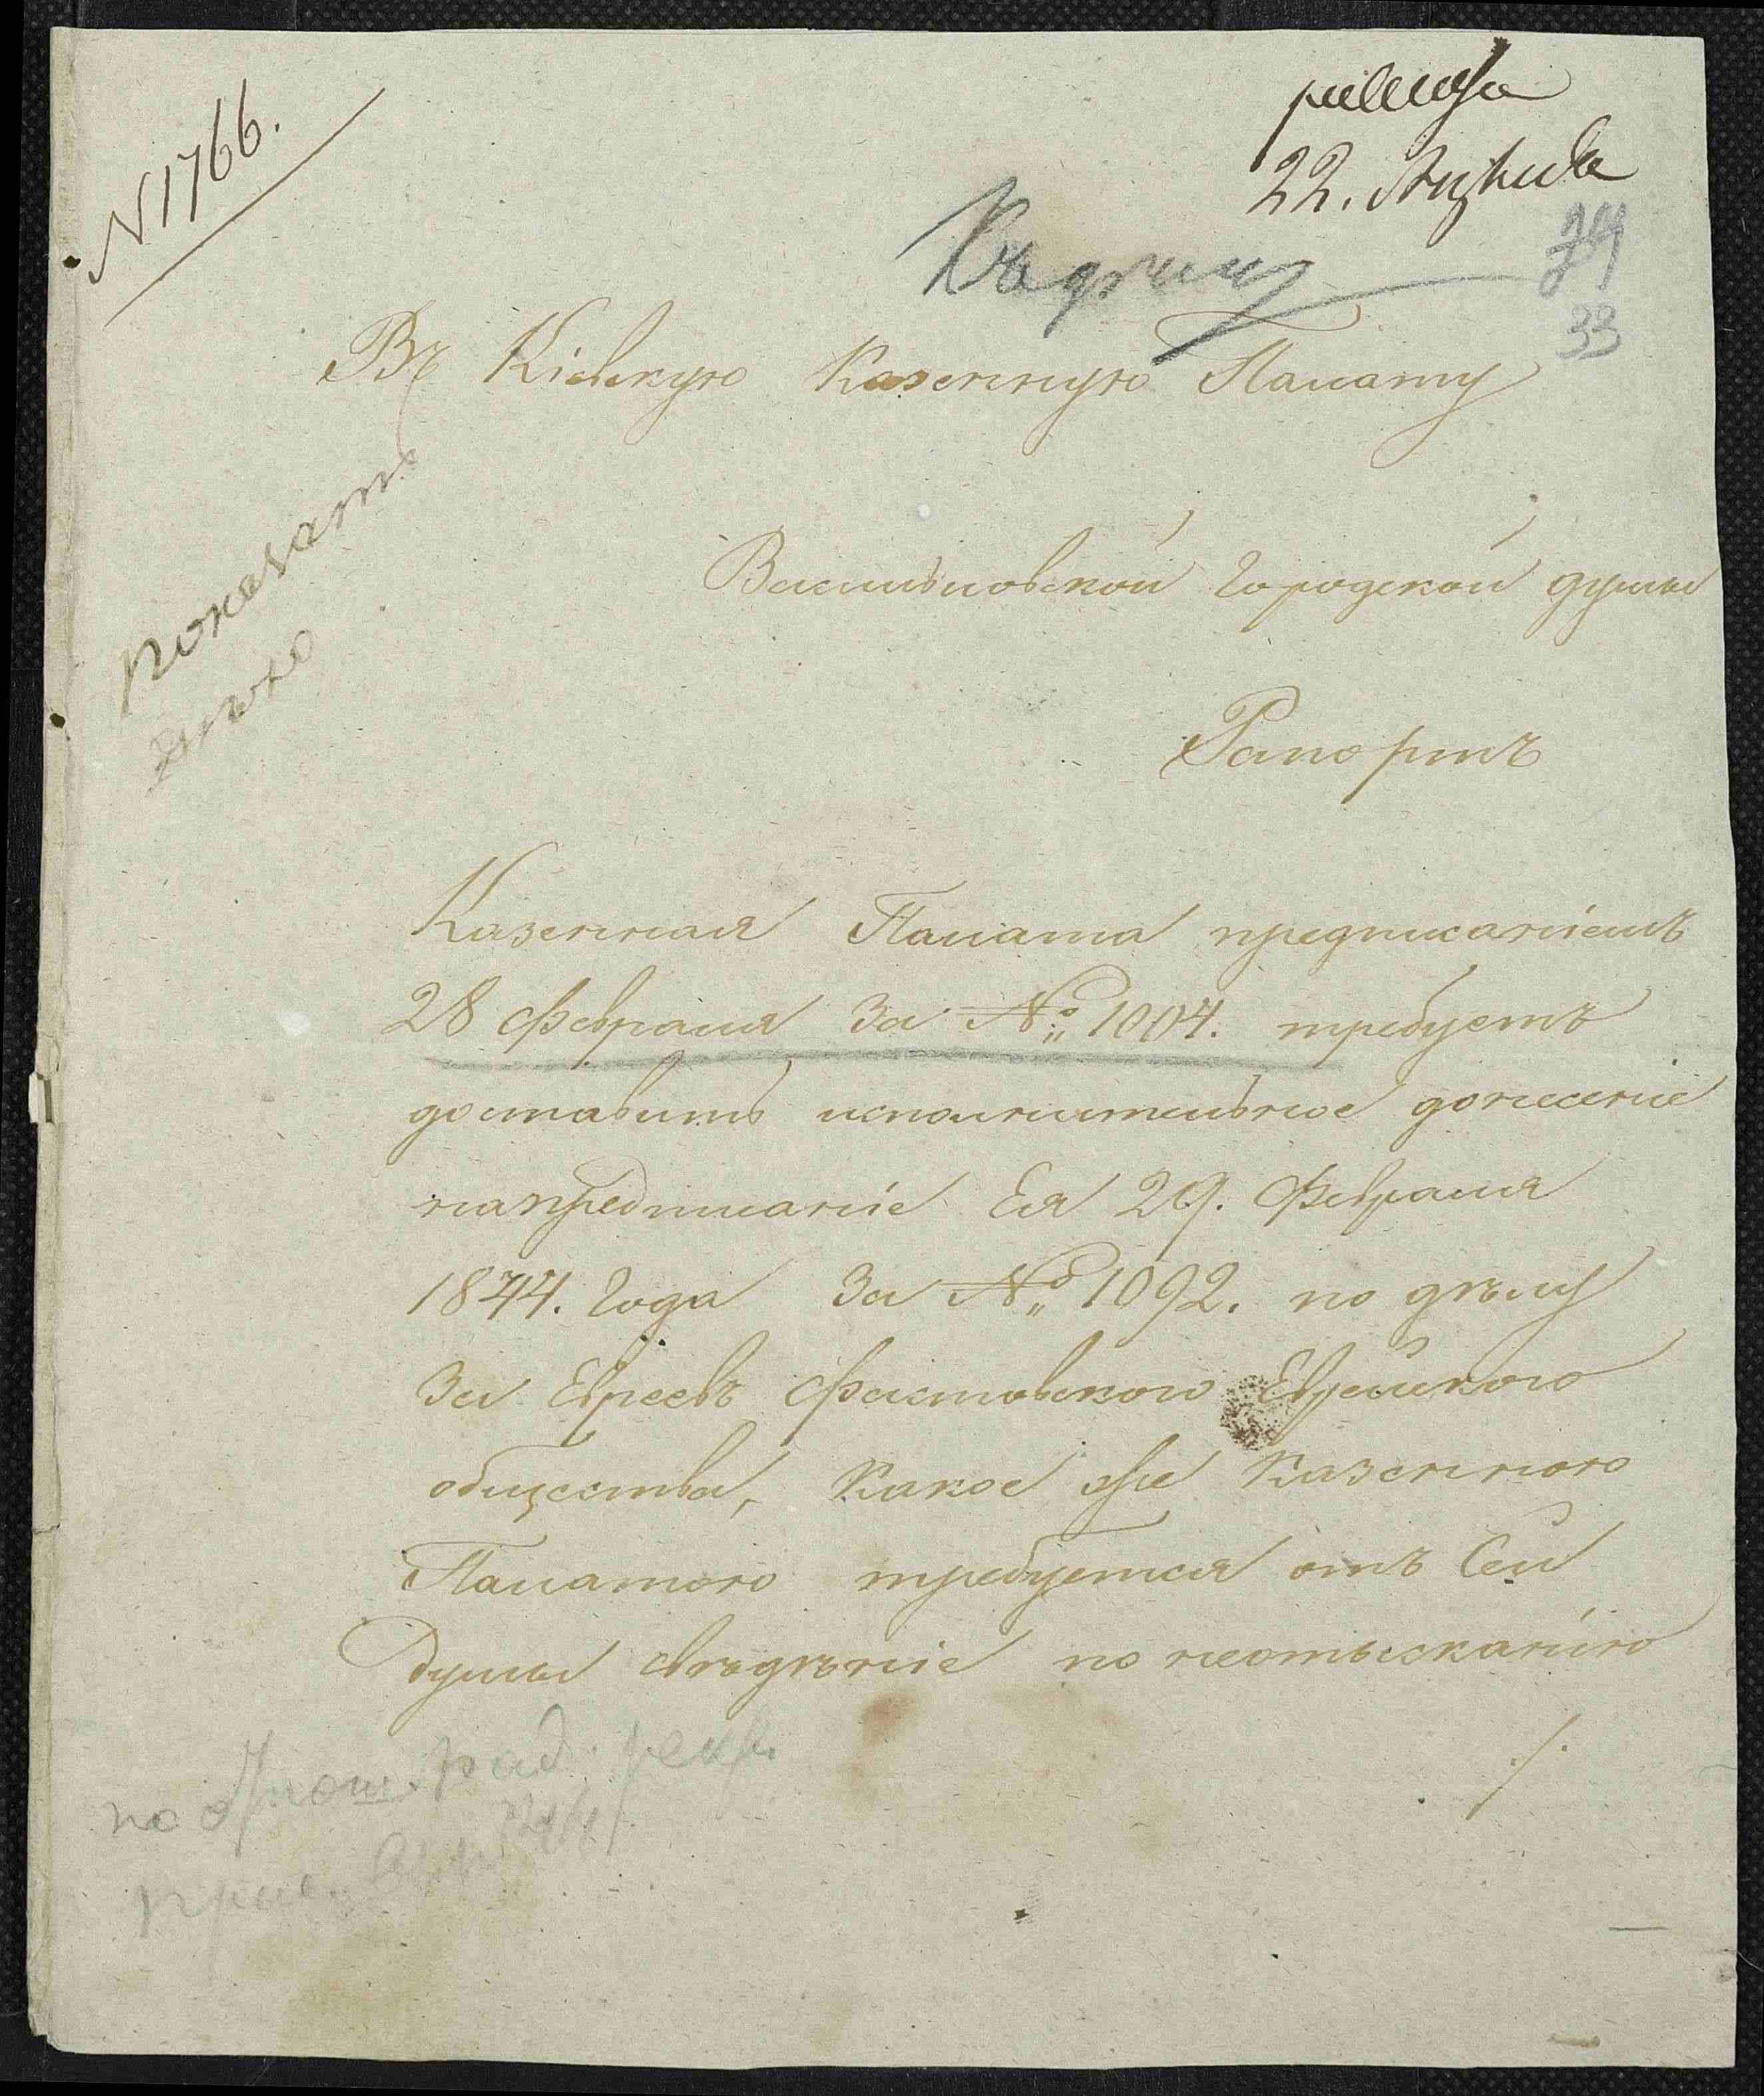 N 1766.
ревизск
22. Апреля
Къ дѣлу
74
33
Въ Кіевскую Казенную Палату
показать
дѣло
Васильковской Городской думы
Рапортъ
Казенная Палата предписаніемъ
28 февраля За №: 1004. требуетъ
доставить исполнительное донесеніе
напредписаніе Ея 29. Февраля
1844. Года За №: 1092. по дѣлу
За Евреевъ Фастовского Еврейского
общества, Какое же Казенного
Палатою требуется отъ Сей
Думы свѣдѣніе по неотысканію
./.